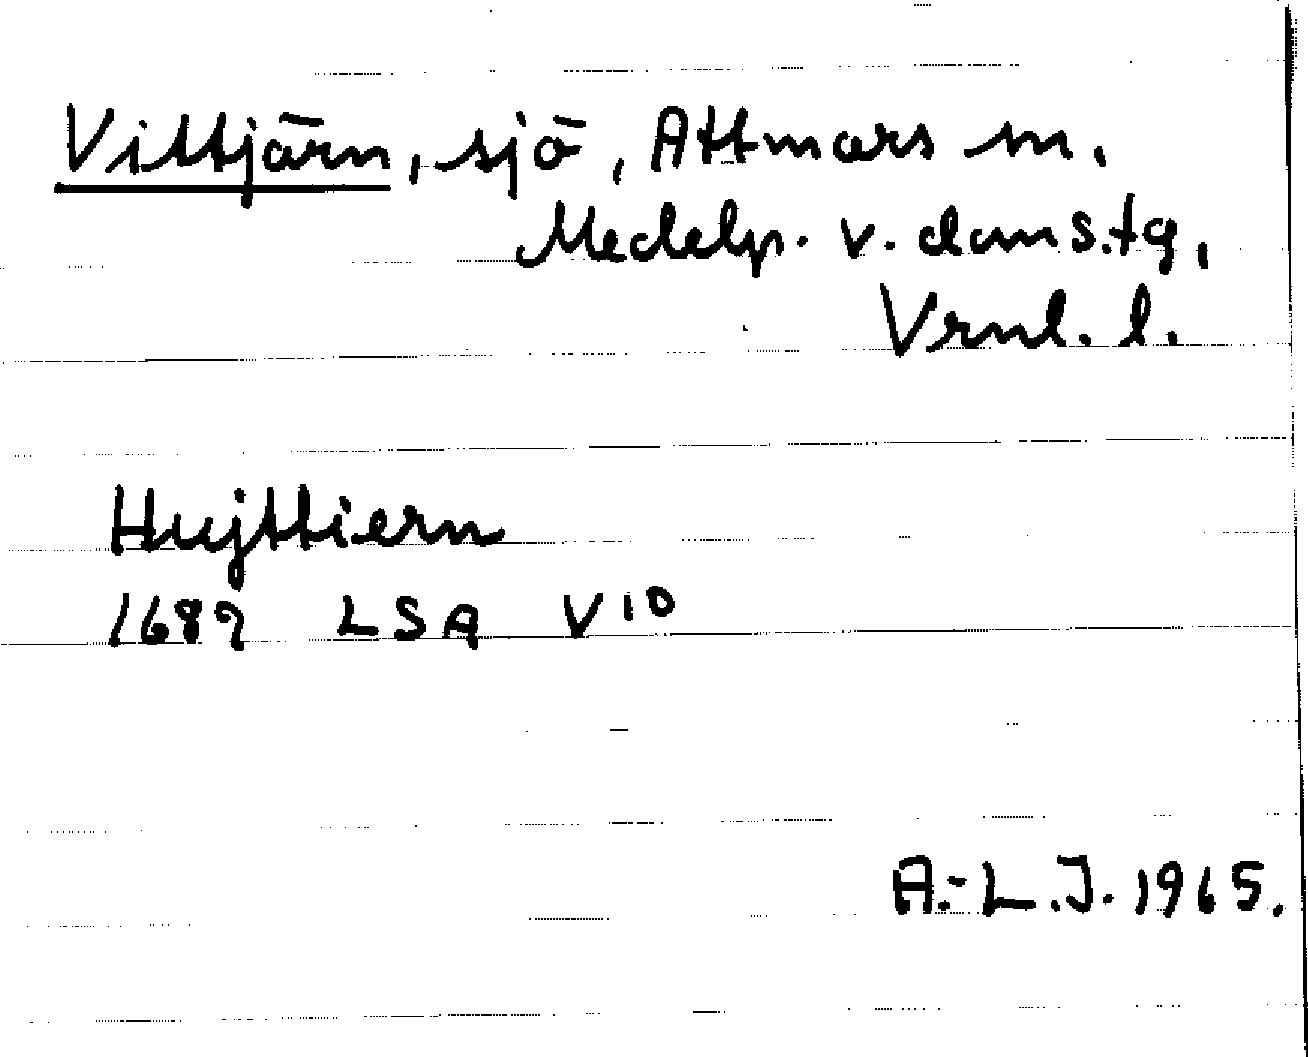 Vittjärn, sjö, Attmars sn.
Medelp. v. doms.tg,
Vrnl. l.
Hujttiern
1689 LSA V10
A.-L.J. 1965.